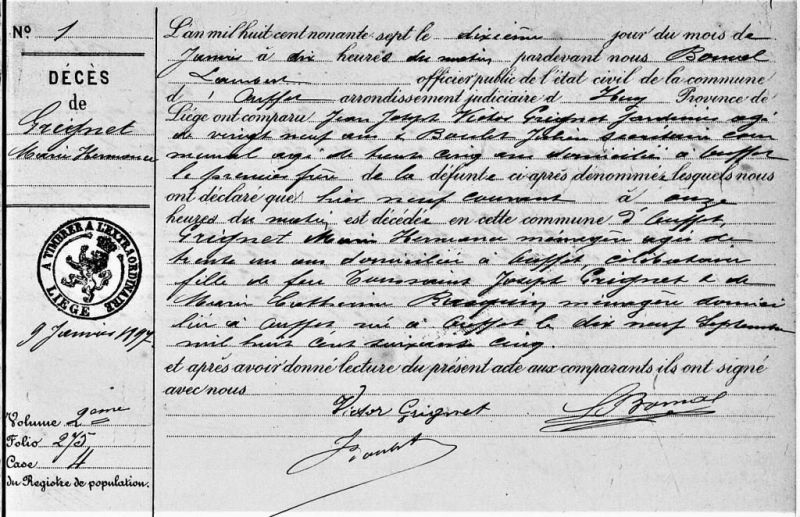 No 1
DÉCÈS
de
Grignet
Marie Hermance
A TIMBRER A L'EXTRAORDINAIRE
LIÉGE
9 Janvier 1897
Volume 2eme
Folio 275
Case 4
du Registre de population.
L'an mil huit cent nonante sept le dixième jour du mois de
Janvier à dix heures du matin, pardevant nous Bomal
Lambert officier public de l'état civil de la commune
d'Ouffet arrondissement judiciaire d Huy Province de
Liége ont comparu Jean Joseph Victor Grignet Jardinier agé
de vingt neuf ans & Boulet Julien secrétaire com
munal agé de trente cinq ans domicilié à Ouffet
le premier frère de la défunte ci-après dénommée, lesquels nous
ont déclaré que hier neuf courant à onze
heures du matin est décédée en cette commune d'Ouffet,
Grignet Marie Hermance ménagère agée de
trente un ans domiciliée à Ouffet célibataire
fille de feu Toussaint Joseph Grignet & de
Marie Catherine Basquin, ménagère domici
liée à Ouffet, née à Ouffet le dix neuf Septembre
mil huit cent soixante cinq.
et après avoir donné lecture du présent acte aux comparants ils ont signé
avec nous
Victor Grignet
L. Bomal
J Boulet